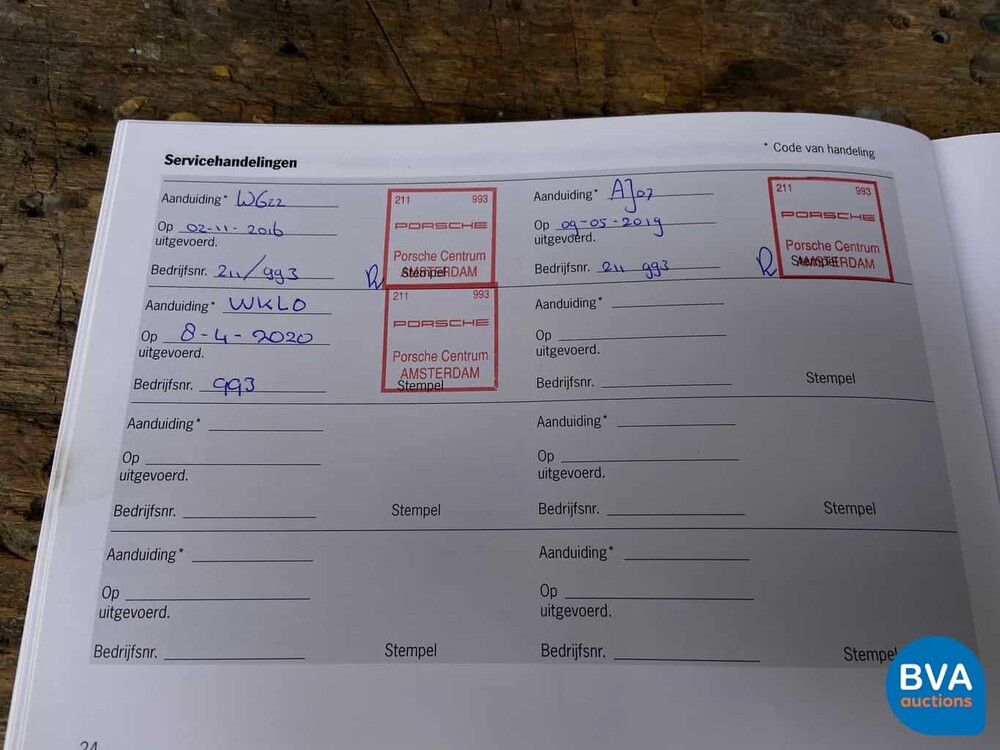 Servicehandelingen
* Code van handeling
Aanduiding* WG22
Op 02-11-2016
uitgevoerd.
Bedrijfsnr. 211/993
211 993
PORSCHE
Porsche Centrum
AMSTERDAM
Stempel
Aanduiding* AJ07
Op 09-05-2019
uitgevoerd.
Bedrijfsnr. 211 993
211 993
PORSCHE
Porsche Centrum
AMSTERDAM
Stempel
Aanduiding* WKLO
Op 8-4-2020
uitgevoerd.
Bedrijfsnr. 993
211 993
PORSCHE
Porsche Centrum
AMSTERDAM
Stempel
Aanduiding*
Op
uitgevoerd.
Bedrijfsnr.
Stempel
Aanduiding*
Op
uitgevoerd.
Bedrijfsnr.
Stempel
Aanduiding*
Op
uitgevoerd.
Bedrijfsnr.
Stempel
Aanduiding*
Op
uitgevoerd.
Bedrijfsnr.
Stempel
Aanduiding*
Op
uitgevoerd.
Bedrijfsnr.
Stempel
24
BVA
auctions